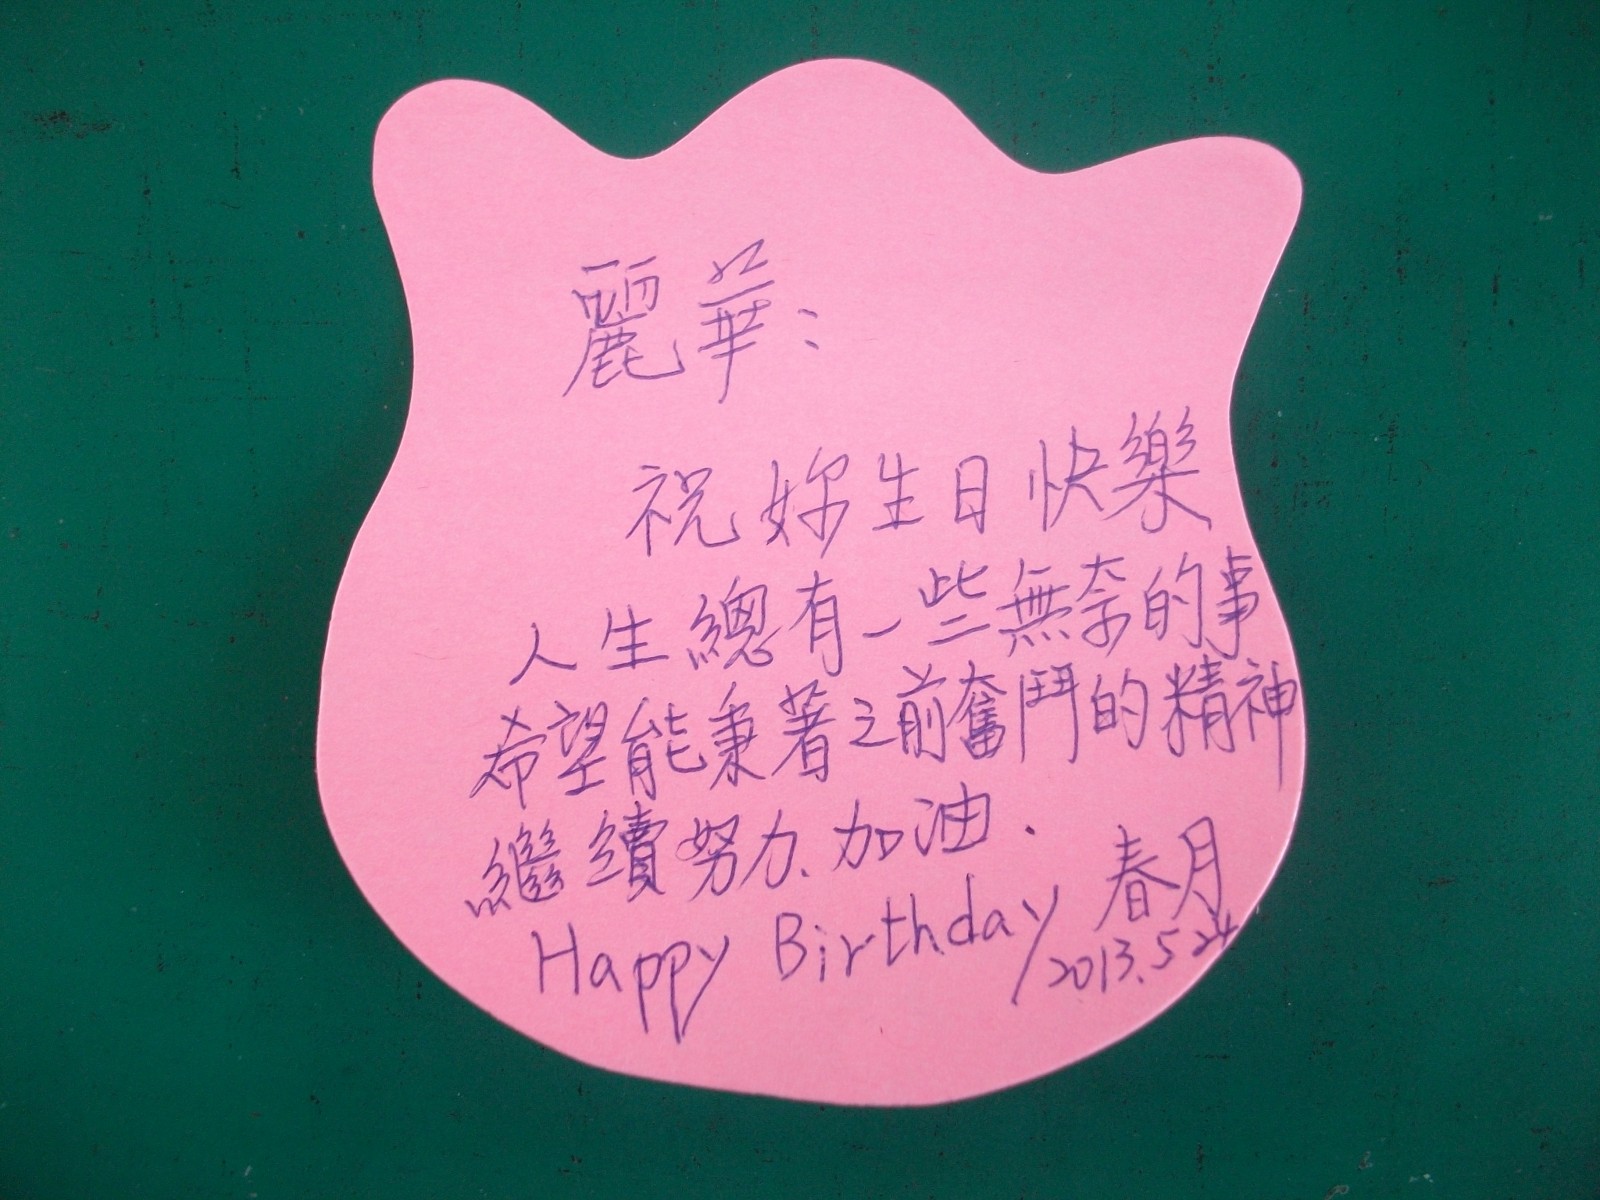 麗華：
祝妳生日快樂
人生總有一些無奈的事
希望能秉著之前奮鬥的精神
繼續努力、加油．
Happy Birthday 春月
2013.5.24